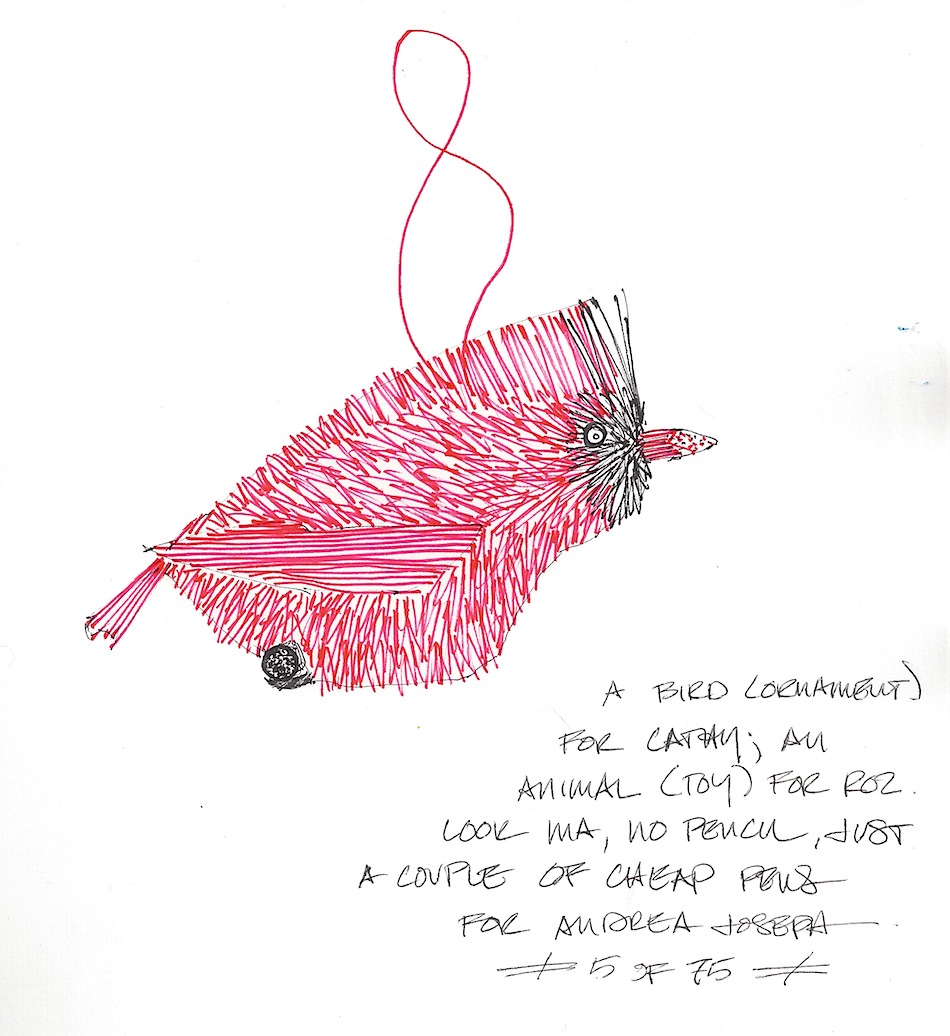 A BIRD (ORNAMENT)
FOR CATHY; AN
ANIMAL (TOY) FOR ROZ.
LOOK MA, NO PENCIL, JUST
A COUPLE OF CHEAP PENS
FOR ANDREA JOSEPH.
5 OF 75